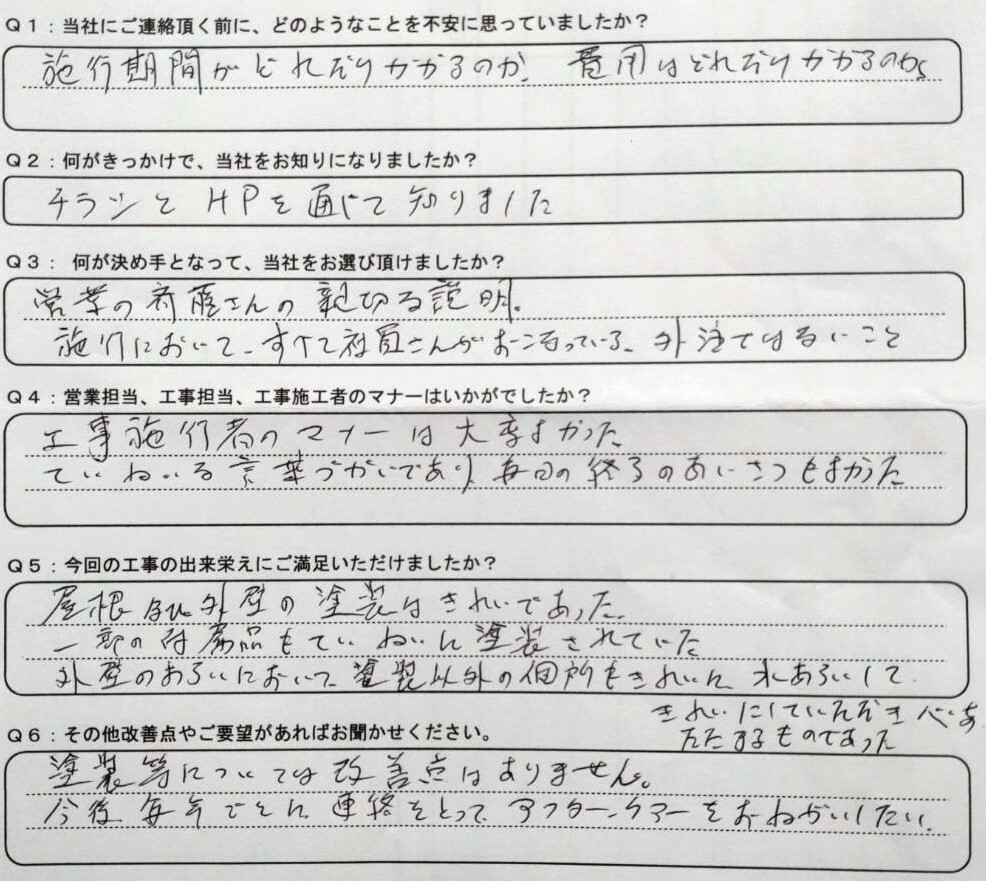 Q1：当社にご連絡頂く前に、どのようなことを不安に思っていましたか？
施行期間がどれだけかかるのか、費用はどれだけかかるのか
Q2：何がきっかけで、当社をお知りになりましたか？
チラシとHPを通じて知りました
Q3： 何が決め手となって、当社をお選び頂けましたか？
営業の斉藤さんの親切な説明。
施行において、すべて社員さんがおこなっている、外注ではないこと
Q4：営業担当、工事担当、工事施工者のマナーはいかがでしたか？
工事施行者のマナーは大変よかった
ていねいな言葉づかいであり、毎回の終了のあいさつもよかった
Q5：今回の工事の出来栄えにご満足いただけましたか？
屋根及び外壁の塗装はきれいであった。
一部の付属品もていねいに塗装されていた
外壁のあらいにおいて、塗装以外の個所もきれいに水あらいして
きれいにしていただき心あ
たたまるものであった
Q6：その他改善点やご要望があればお聞かせください。
塗装等については改善点はありません。
今後毎年ごとに連絡をとって、アフターケアーをおねがいしたい。